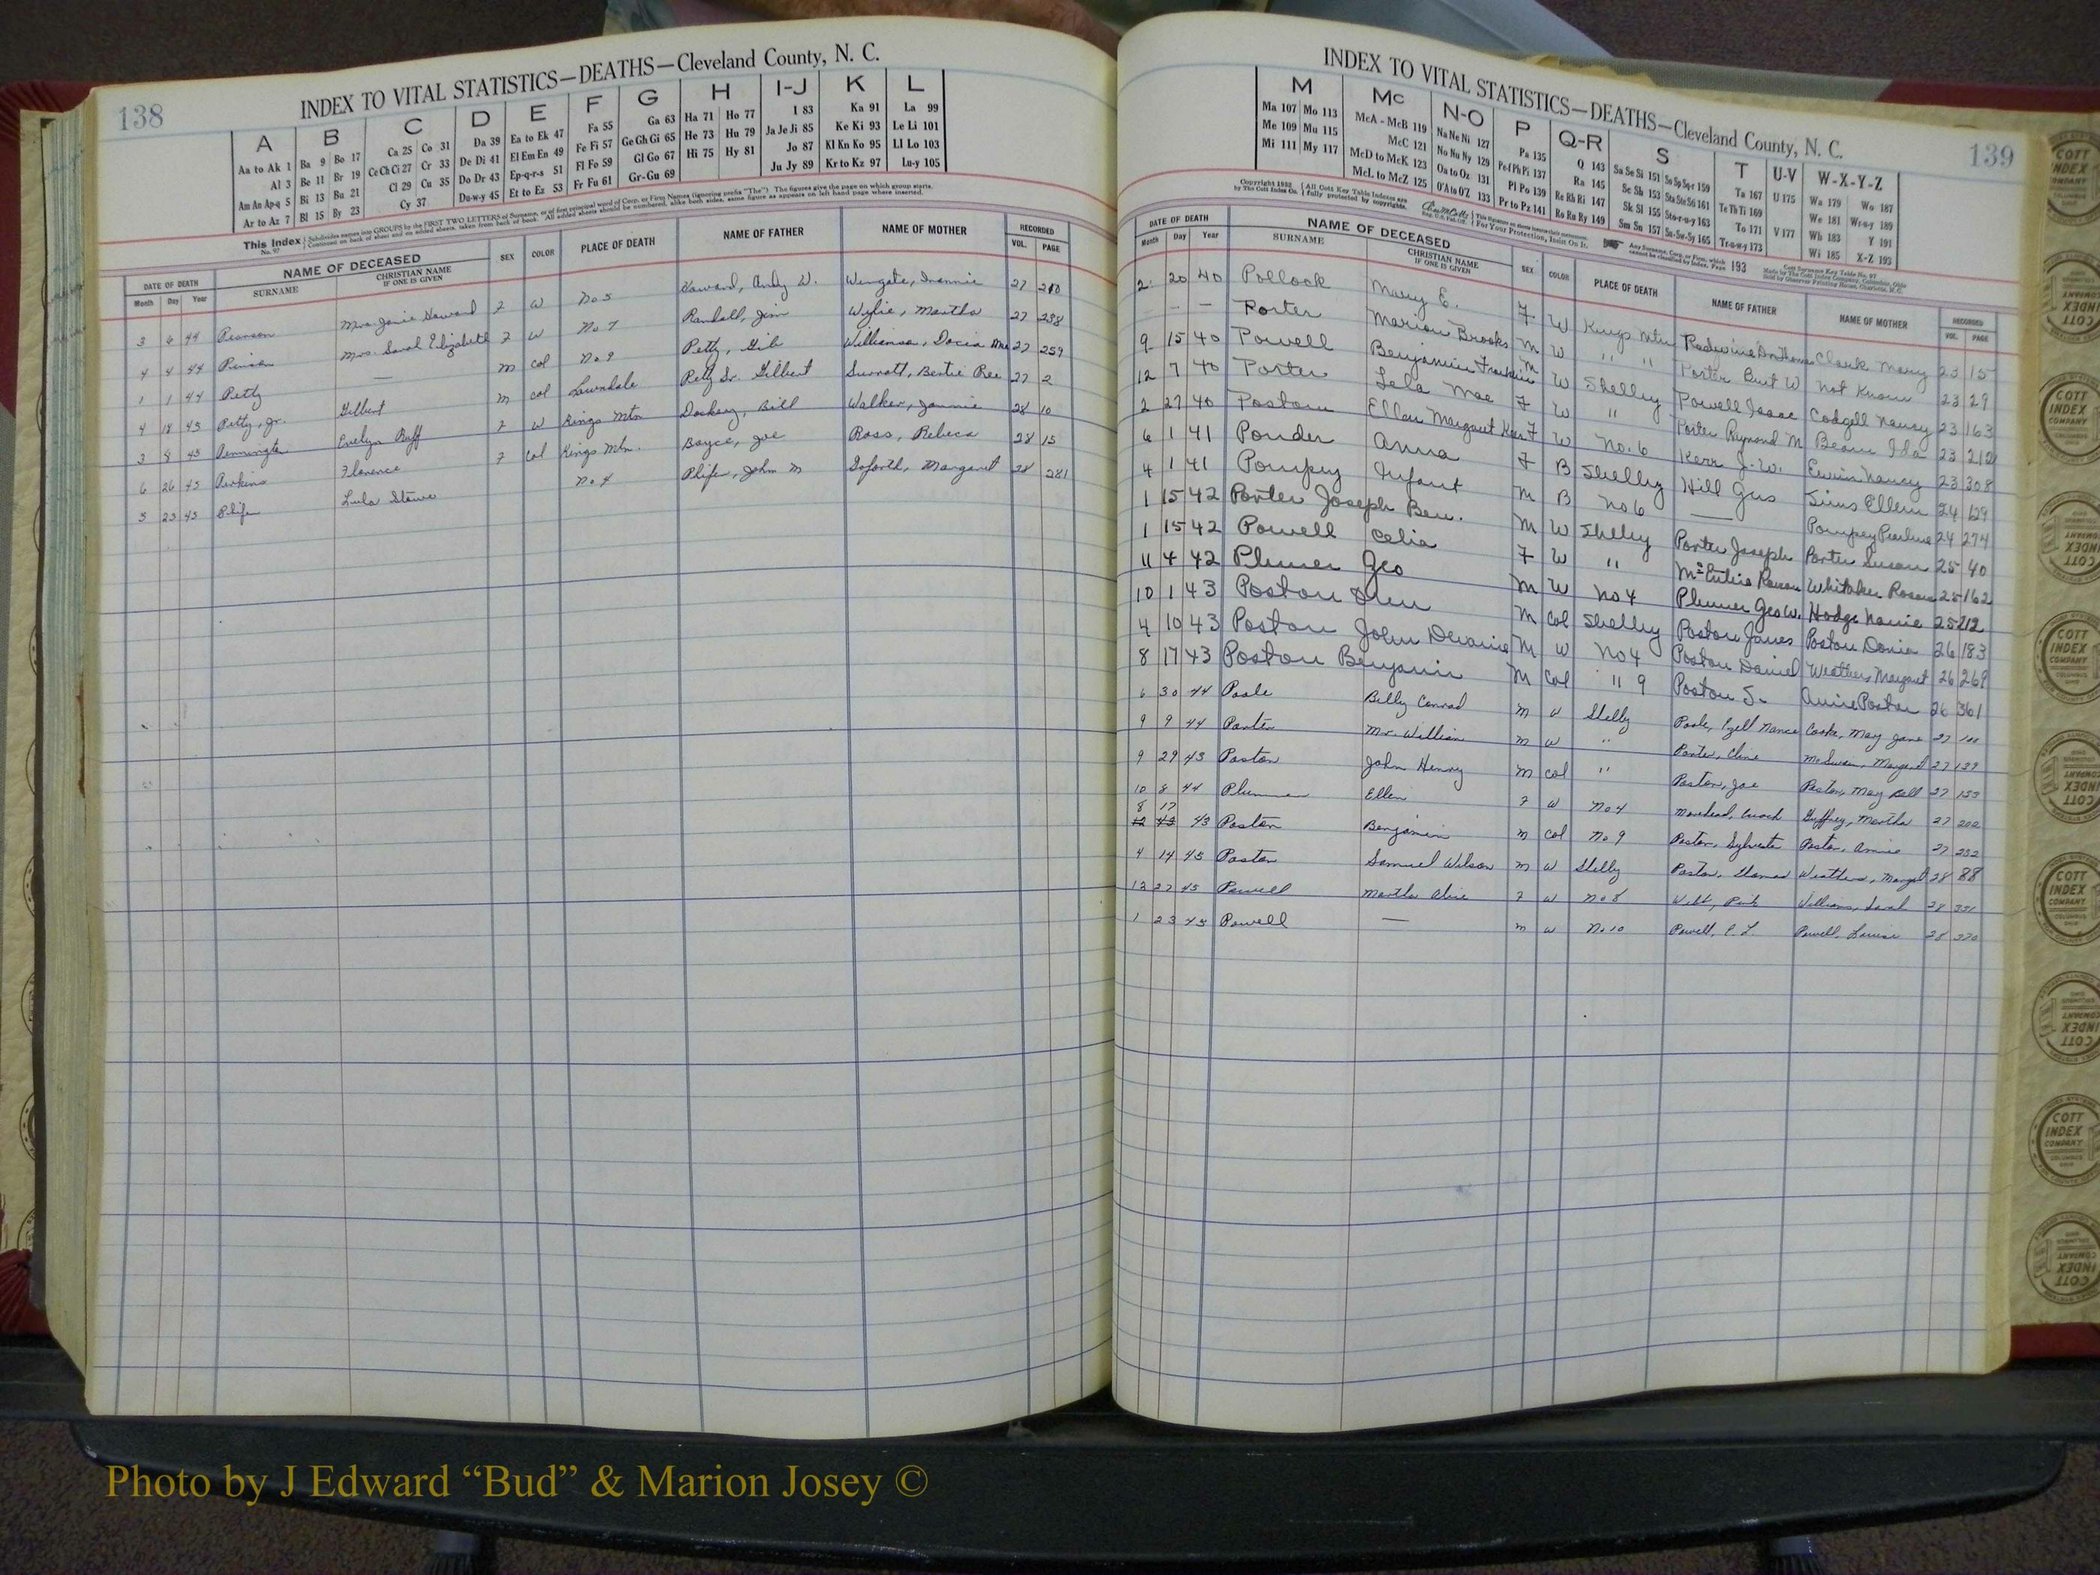 138
INDEX TO VITAL STATISTICS—DEATHS—Cleveland County, N. C.
A B C D E F G H I-J K L
Aa to Ak 1 Ba 9 Bo 17 Ca 25 Co 31 Da 39 Ea to Ek 47 Fa 55 Ga 63 Ha 71 Ho 77 I 83 Ka 91 La 99
Al 3 Be 11 Br 19 Ce Ch Ci 27 Cr 33 De Di 41 El Em En 49 Fe Fi 57 Ge Gh Gi 65 He 73 Hu 79 Ja Je Ji 85 Ke Ki 93 Le Li 101
Am An Ap-q 5 Bi 13 Bu 21 Cl 29 Cu 35 Do Dr 43 Ep-q-r-s 51 Fl Fo 59 Gl Go 67 Hi 75 Hy 81 Jo 87 Kl Kn Ko 95 Ll Lo 103
Ar to Az 7 Bl 15 By 23 Cy 37 Du-w-y 45 Et to Ez 53 Fr Fu 61 Gr-Gu 69 Ju Jy 89 Kr to Kz 97 Lu-y 105
This Index No. 97 Subdivides names into GROUPS by the FIRST TWO LETTERS of Surname, or of first principal word of Corp. or Firm Names (ignoring prefix "The"). The figures give the page on which group starts.
Continued on back of sheet and on added sheets, taken from back of book. All added sheets should be numbered, alike both sides, same figure as appears on left hand page where inserted.
DATE OF DEATH NAME OF DECEASED SEX COLOR PLACE OF DEATH NAME OF FATHER NAME OF MOTHER RECORDED
Month Day Year SURNAME CHRISTIAN NAME IF ONE IS GIVEN VOL. PAGE
3 6 44 Pearson Mrs. Janie Howard F W No 5 Howard, Andy W. Wingate, 27 210
4 4 44 Mrs. Sarah Elizabeth F W No 7 Randall, Jim Wylie, Martha 27 238
1 1 44 Petty — M col No 9 Petty, Gib Williamson, Docia Mae 27 259
4 18 45 Petty, Jr. Gilbert M col Lawndale Petty Sr. Gilbert Surratt, Bertie Ree 27 2
3 8 45 Pennington Evelyn Goff F W Kings Mtn Dockery, Bill Walker, Jannie 28 10
6 26 45 Perkins Florence F col Kings Mtn. Boyce, Joe Ross, Rebeca 28 15
3 23 45 Phifer Lula Stowe No 4 Phifer, John M Goforth, Margaret 28 281
139
INDEX TO VITAL STATISTICS—DEATHS—Cleveland County, N. C.
M Mc N-O P Q-R S T U-V W-X-Y-Z
Ma 107 Mo 113 McA - McB 119 Na Ne Ni 127 Pa 135 Q 143 Sa Se Si 151 Sn Sp Sq-r 159 Ta 167 U 175 Wa 179 Wo 187
Me 109 Mu 115 McC 121 No Nu Ny 129 Pe-f Ph Pi 137 Ra 145 Sc Sh 153 Sta Ste Sti 161 Te Th Ti 169 We 181 Wr-u-y 189
Mi 111 My 117 McD to McK 123 Oa to Oz 131 Pl Po 139 Re Rh Ri 147 Sk Sl 155 Sto-r-u-y 163 To 171 V 177 Wh 183 Y 191
McL to McZ 125 O'A to O'Z 133 Pr to Pz 141 Ro Ru Ry 149 Sm Sn 157 Su-Sw-Sy 165 Tr-u-w-y 173 Wi 185 X-Z 193
Copyright 1932 by The Cott Index Co. All Cott Key Table Indexes are fully protected by copyrights. For Your Protection, Insist On It. Any Surname, Corp. or Firm, which cannot be classified by Index, Page 193
DATE OF DEATH NAME OF DECEASED SEX COLOR PLACE OF DEATH NAME OF FATHER NAME OF MOTHER RECORDED
Month Day Year SURNAME CHRISTIAN NAME IF ONE IS GIVEN VOL. PAGE
2 20 40 Pollock Mary E. F W Kings Mtn Clark Mary 23 15
— — Porter Marion Brooks M W " " Porter Burt W Not Know 23 29
9 15 40 Powell Benjamin Franklin M W Shelby Powell Isaac Codgell Nancy 23 163
12 7 40 Porter Lela Mae F W " Porter Raymond M Beam Ida 23 212
2 27 40 Poston Ellen Margaret Kerr F W No. 6 Kerr J. W. Ervin Nancy 23 308
6 1 41 Ponder Anna F B Shelby Hill Gus Sims Ellen 24 129
4 1 41 Pompey Infant M B No 6 — Pompey Pearline 24 274
1 15 42 Porter Joseph Ben. M W Shelby Porter Joseph Porter Susan 25 40
1 15 42 Powell Celia F W " Whitaker 25 162
11 4 42 Plumer Geo M W No 4 Plumer Geo W. Hodge Nanie 25 212
10 1 43 Poston M col Shelby Poston James Poston Donie 26 183
4 10 43 Poston John M W No 4 Poston Daniel Weathers Margaret 26 269
8 17 43 Poston Benjamin M col " 9 Poston S. Annie Poston 26 361
6 30 44 Poole Billy Conrad M W Shelby Poole, Ezell Nance Cooke, May Jane 27 100
9 9 44 Porter Mr. William M W " Porter, Cline Margaret 27 139
9 29 43 Poston John Henry M col " Poston, Joe Poston, May Bell 27 153
10 8 44 Plummer Ellen F W No 4 Morehead, Enoch Guffrey, Martha 27 202
8 17 43 Poston Benjamin M col No 9 Poston, Sylvester Poston, Annie 27 232
4 14 45 Poston Samuel Wilson M W Shelby Poston, Thomas Weathers, Margaret 28 88
12 27 45 Powell Martha Alice F W No 8 Williams, Sarah 28 331
1 23 45 Powell — M W No 10 Powell, Powell, Louise 28 370
COTT INDEX COMPANY COLUMBUS OHIO
Photo by J Edward “Bud” & Marion Josey ©